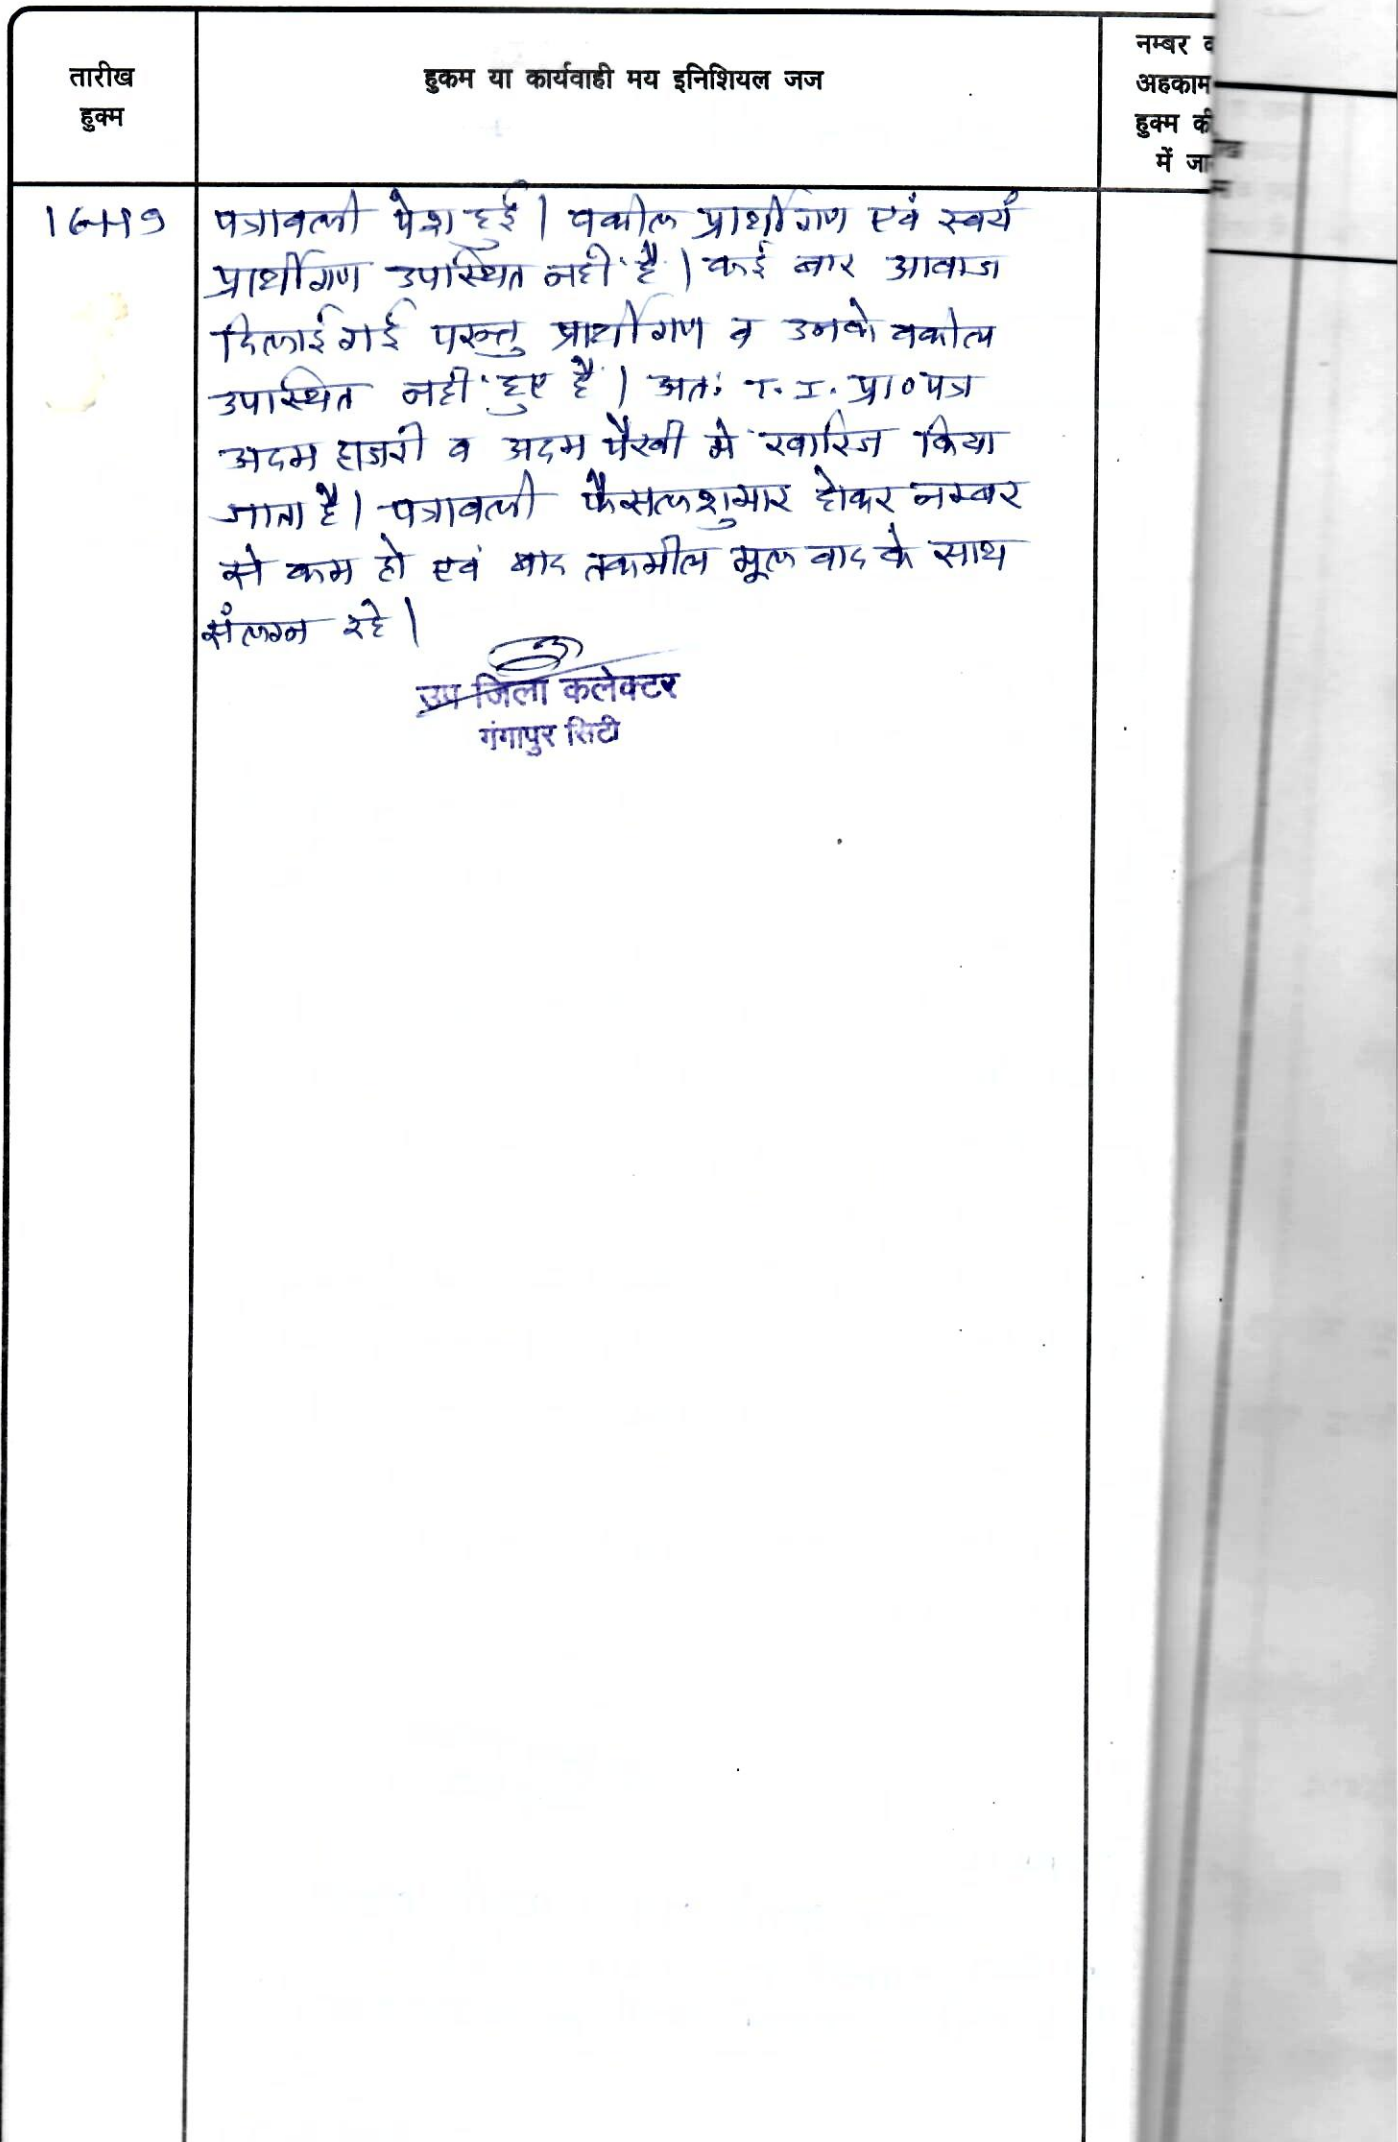 तारीख
हुक्म
हुकम या कार्यवाही मय इनिशियल जज
नम्बर व
अहकाम
हुक्म की
में जा
पत्रावली पेश हुई। वकील प्रार्थीगण एवं स्वयं
प्रार्थीगण उपस्थित नहीं है। कई बार आवाज
दिलाई गई परन्तु प्रार्थीगण व उनके वकील
उपस्थित नहीं हुए है। अतः T. I. प्रा०पत्र
अदम हाजरी व अदम पैरवी में खारिज किया
जाता है। पत्रावली फैसलशुमार होकर नम्बर
से कम हो एवं बाद तकमील मूल वाद के साथ
संलग्न रहे।
उप जिला कलेक्टर
गंगापुर सिटी